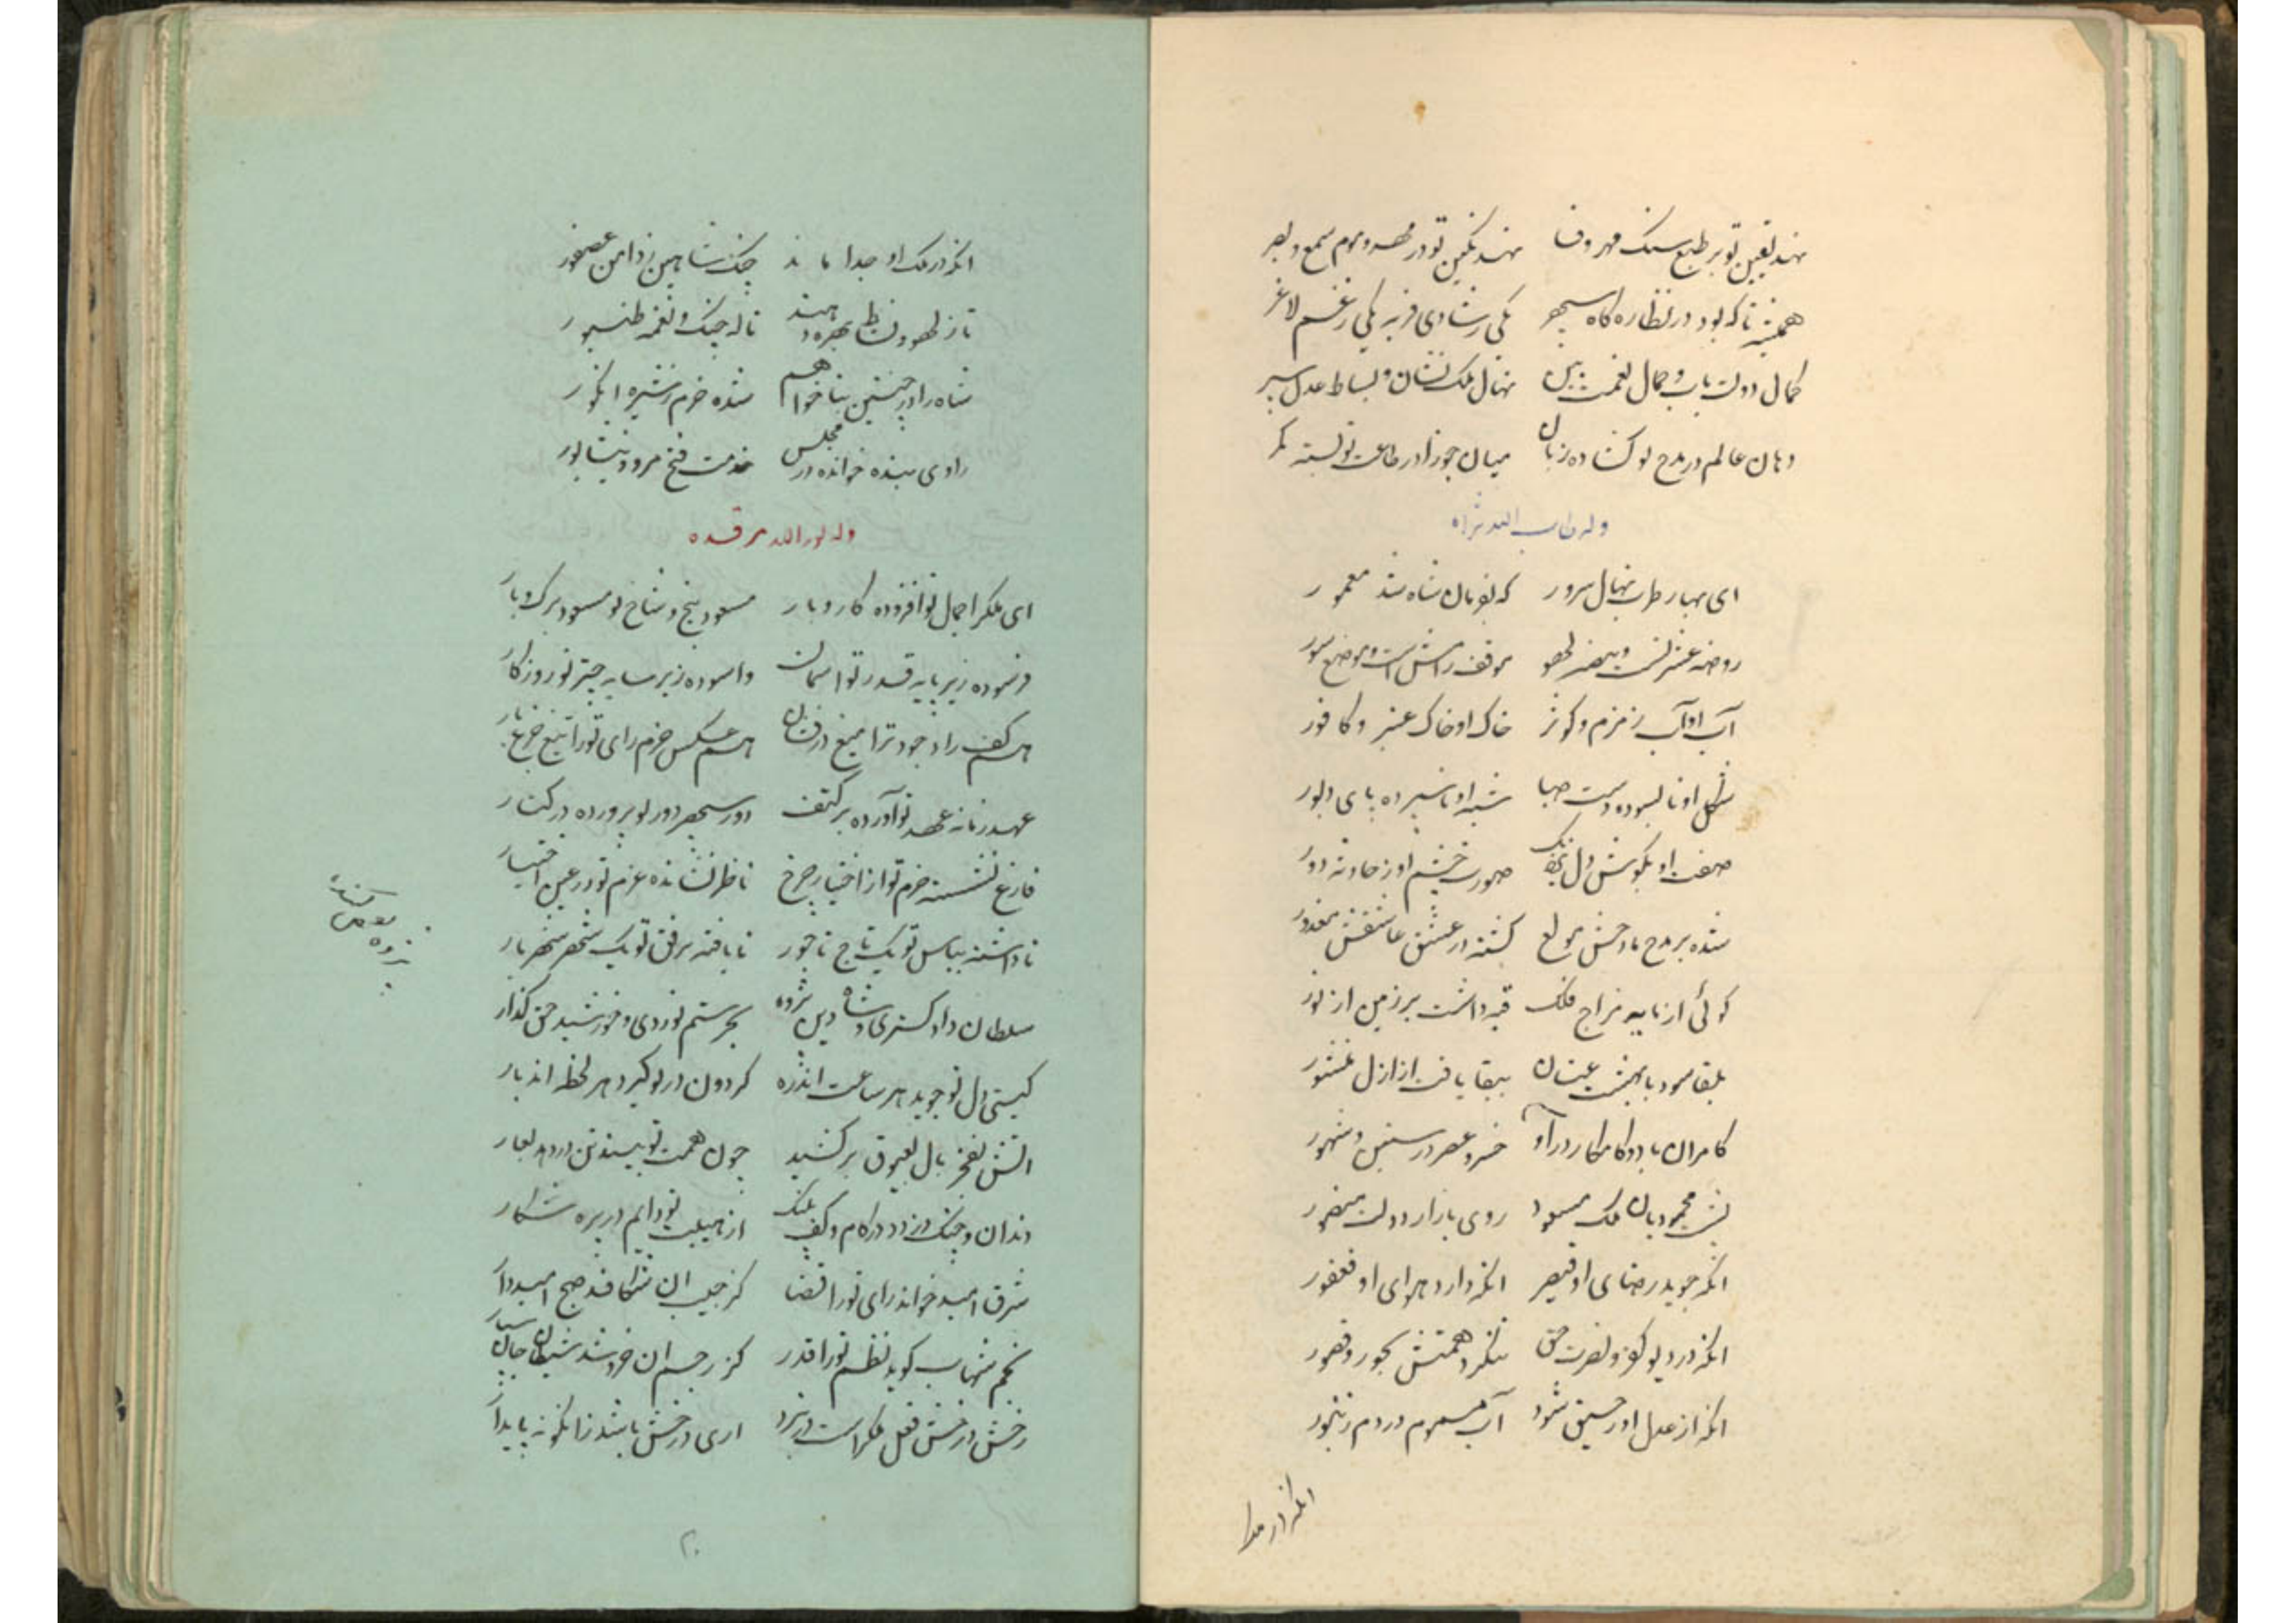 نهد یقین تو بر طبع سنگ مهر وفا نهد نگین تو در مهر و موم سمع و بصر
همیشه تا که بود در نظاره گاه سپهر یکی ز شادی فربه یکی ز غم لاغر
کمال دولت یاب و جمال نعمت بین نهال ملک نشان و بساط عدل سپر
دهان عالم در مدح تو گشاده زبان میان جوزا در طاعت تو بسته کمر
وله طاب الله ثراه
ای بهار طرب نهال سرور که بفرمان شاه شد معمور
روضه عشرتست و بیضه لهو موقف رامش است و موضع سور
آب او آب زمزم و کوثر خاک او خاک عنبر و کافور
شکل او نابسوده دست صبا شبه او ناسپرده پای دبور
صفت او بگوش دل نزدیک صورت چشم او ز حادثه دور
شده بر مدح مادحش مولع گشته در عشق عاشقش معذور
گوئی از نایبه مزاج فلک قبه داشت بر زمین از نور
بلقا سود با بهشت عنان ببقا یافت از ازل منشور
کامران باد و کامکار در او خسرو عصر در سنین و شهور
پشت محمودیان ملک مسعود روی بازار دولت منصور
انکه جوید رضای او قیصر انکه دارد هوای او فغفور
انکه در دیو کفر و نصرت حق ننگرد همتش بحور و قصور
انکه از عدل او رحیق شود آب مسموم در دم زنبور
انکه در مدا
انکه در ملک او جدا ماند چنگ شاهین ز دامن عصفور
تا ز لهو و نشاط بهره دهند ناله چنگ و نغمه طنبور
شاه را در چنین بنا خواهم شده خرم ز شیره انگور
راوی بنده خوانده در مجلس خدمت فتح مرو و نیشابور
وله نور الله مرقده
ای ملک را جمال تو افزوده کار و بار مسعود بیخ و شاخ تو مسعود برگ و بار
فرسوده زیر پایه قدر تو اسمان واسوده زیر سایه چتر تو روزگار
هم کف راد جود ترا میغ در فشان هم عکس حزم رای تو را تیغ
عهد زمانه عهد تو آورده بر کتف دور سپهر دور تو پرورده در کنار
فارغ نشسته حزم تو از اختیار چرخ ناظر نشانده عزم تو در عین اختیار
ناداشته بپاس تو یک تاج تاجور نایافته برفق تو یک شهر شهریار
سلطان دادگستری و شاه دین پژوه بحر ستم نوردی و خورشید حق گذار
گیتی دل تو جوید هر ساعت اندره گردون در تو گیرد هر لحظه اندبار
اتش بفخر بال بعیوق برکشید چون همت تو بیند تن در دهد بعار
دندان و چنگ دزدد در کام و کف پلنگ از هیبت تو دایم در بره شکار
شرق امید خواند رای تو را قضا کز جیب ان شکافد صبح امیدوار
نجم شهاب گوید نظم تو را قدر کز رجم ان خروشد شیطان جان سپار
رخش درخش فعل ملک راست در نبرد اری درخش باشد زانگونه پایدار
۲۰